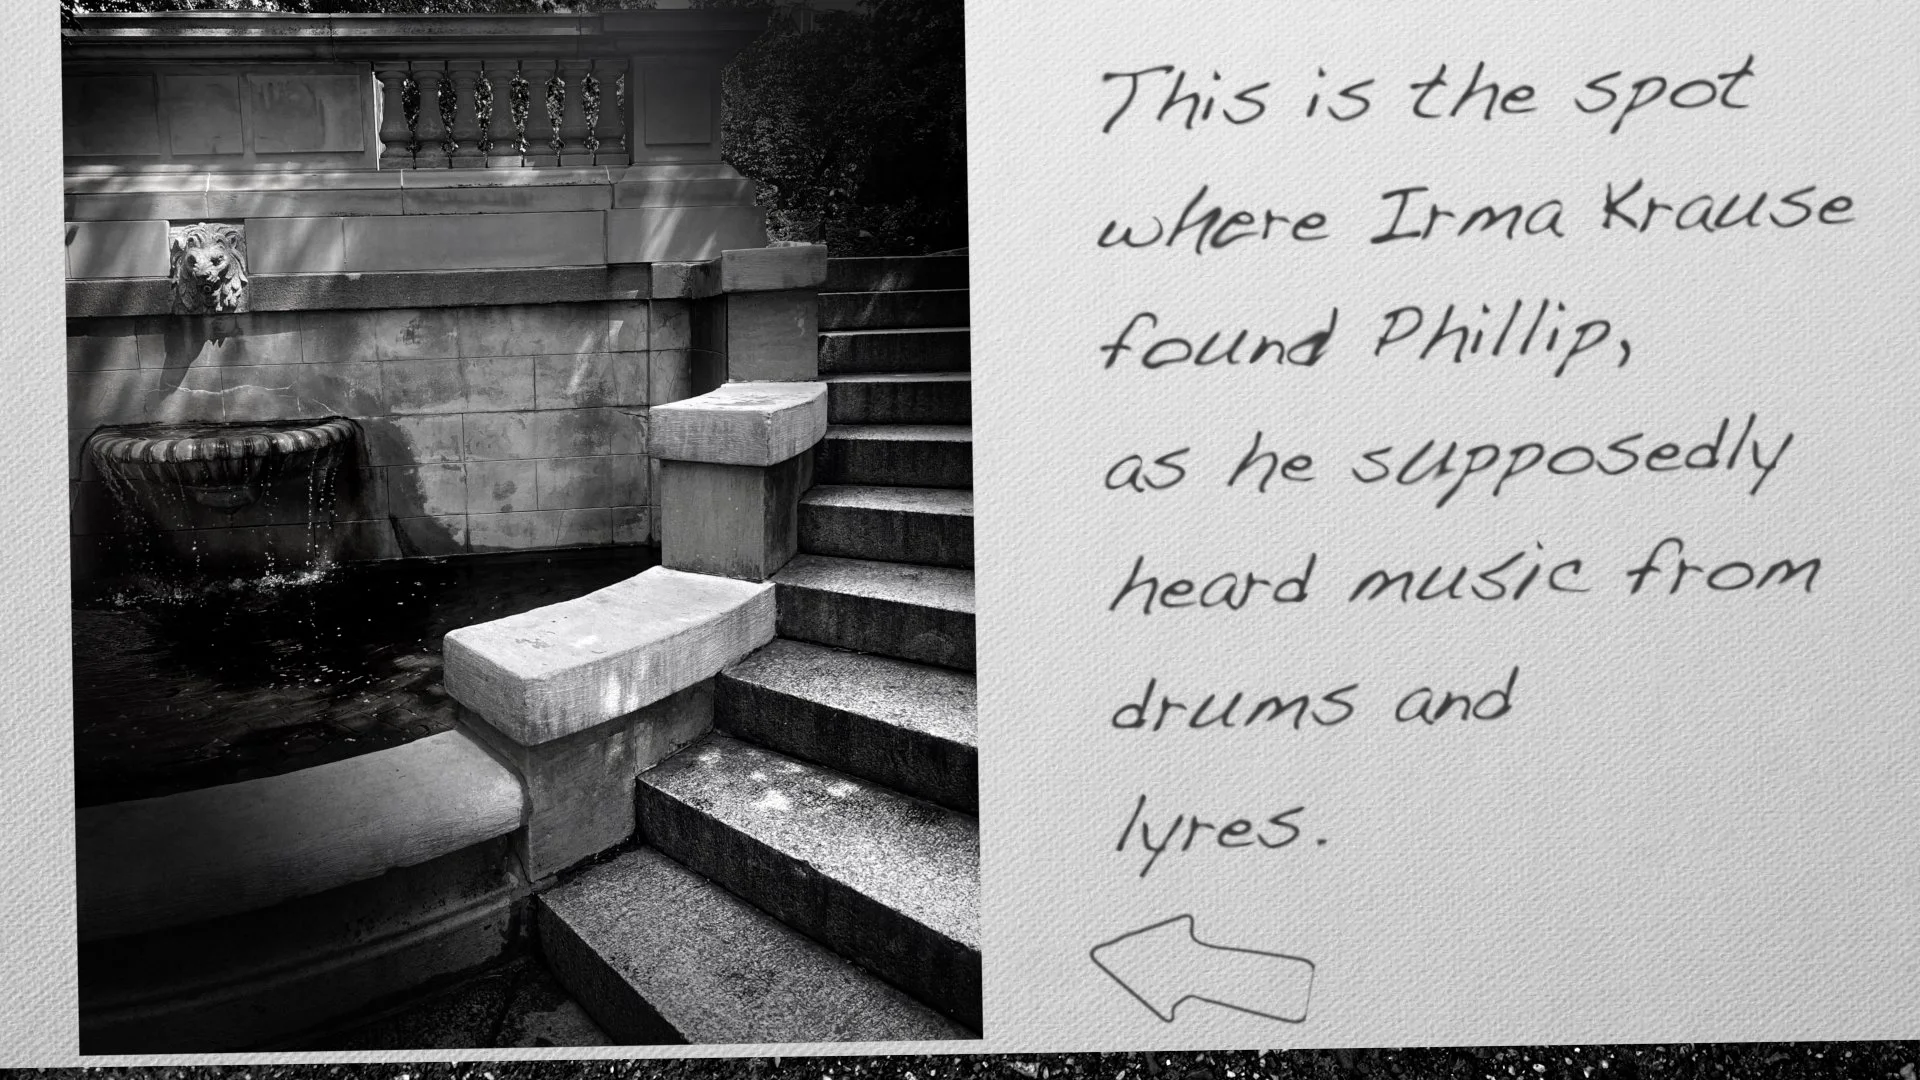 This is the spot
where Irma Krause
found Phillip,
as he supposedly
heard music from
drums and
lyres.